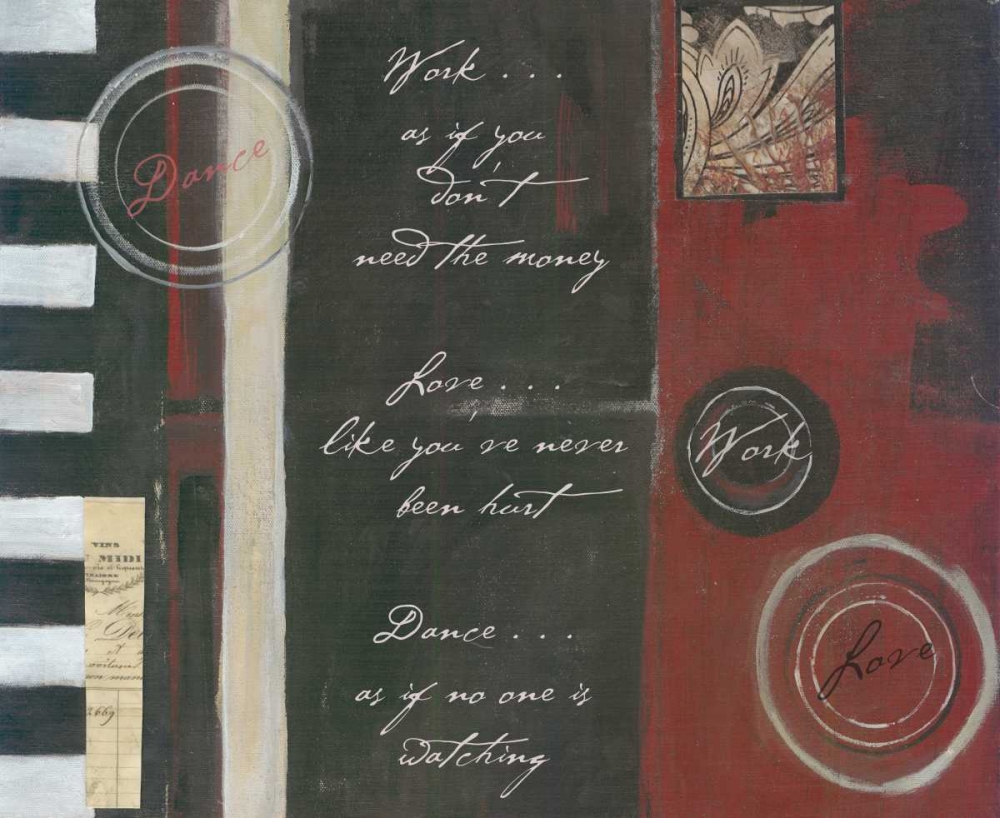 Work . . .
as if you
don't
need the money
Love . . .
like you've never
been hurt
Dance . . .
as if no one is
watching
Dance
Work
Love
VINS
MIDI
2669